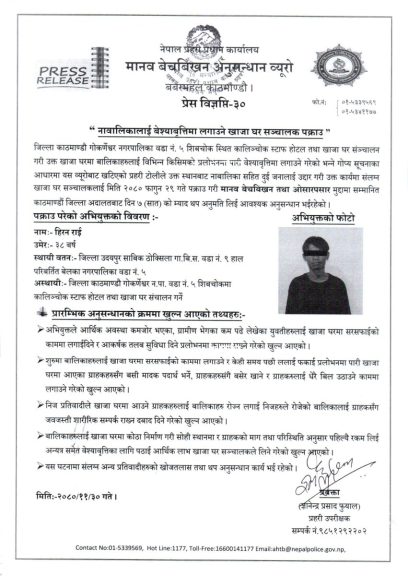 नेपाल प्रहरी प्रधान कार्यालय
मानव बेचबिखन अनुसन्धान ब्यूरो
बबरमहल काठमाण्डौं ।
प्रेस विज्ञप्ति-३०
PRESS
RELEASE
फो.नं:
०१-५३३९५६९
०१-५३४११७७
“ नावालिकालाई बेश्यावृत्तिमा लगाउने खाजा घर सञ्चालक पक्राउ ”
जिल्ला काठमाण्डौं गोकर्णेश्वर नगरपालिका वडा नं. ५ शिबचोक स्थित कालिञ्चोक स्टाफ होटल तथा खाजा घर सञ्चालन
गरी उक्त खाजा घरमा बालिकाहरुलाई विभिन्न किसिमको प्रलोभनमा पारी वेश्यावृत्तिमा लगाउने गरेको भन्ने गोप्य सूचनाका
आधारमा यस व्यूरोबाट खटिएको प्रहरी टोलीले उक्त स्थानबाट नाबालिका सहित दुई जनालाई उद्दार गरी उक्त कार्यमा संलग्न
खाजा घर सञ्चालकलाई मिति २०८० फागुन २९ गते पक्राउ गरी मानव वेचबिखन तथा ओसारपसार मुद्दामा सम्मानित
काठमाण्डौं जिल्ला अदालतबाट दिन ७ (सात) को म्याद थप अनुमति लिई आवश्यक अनुसन्धान भईरहेको ।
पक्राउ परेको अभियुक्तको विवरण :-
अभियुक्तको फोटो
नाम:- हिरन राई
उमेर:- ३८ बर्ष
स्थायी वतन:- जिल्ला उदयपुर साबिक ठोक्सिला गा.बि.स. वडा नं. ९ हाल
परिवर्तित बेलका नगरपालिका वडा नं. ५
अस्थायी:- जिल्ला काठमाण्डौं गोकर्णेश्वर न.पा. वडा नं. ५ शिबचोकमा
कालिञ्चोक स्टाफ होटल तथा खाजा घर संचालन गर्ने
प्रारम्भिक अनुसन्धानको क्रममा खुल्न आएको तथ्यहरु:-
अभियुक्तले आर्थिक अवस्था कमजोर भएका, ग्रामीण भेगका कम पढे लेखेका युवतीहरुलाई खाजा घरमा सरसफाईको
काममा लगाईदिने र आकर्षक तलब सुविधा दिने प्रलोभनमा राख्ने गरेको खुल्न आएको ।
शुरुमा बालिकाहरुलाई खाजा घरमा सरसफाईको काममा लगाउने र केही समय पछी ललाई फकाई प्रलोभनमा पारी खाजा
घरमा आएका ग्राहकहरुसँग बसी मादक पदार्थ भर्ने, ग्राहकहरुसँगै बसेर खाने र ग्राहकहरुलाई धेरै बिल उठाउने काममा
लगाउने गरेको खुल्न आएको ।
निज प्रतिवादीले खाजा घरमा आउने ग्राहकहरुलाई बालिकाहरु रोज्न लगाई निजहरुले रोजेको बालिकालाई ग्राहकसँग
जवजस्ती शारीरिक सम्पर्क राख्न दबाद दिने गरेको खुल्न आएको ।
बालिकाहरुलाई खाजा घरमा कोठा निर्माण गरी सोही स्थानमा र ग्राहकको माग तथा परिस्थिति अनुसार पहिल्यै रकम लिई
अन्यत्र समेत वेश्यावृत्तिका लागि पठाई आर्थिक लाभ खाजा घर सञ्चालकले लिने गरेको खुल्न आएको ।
यस घटनामा संलग्न अन्य प्रतिवादीहरुको खोजतलास तथा थप अनुसन्धान कार्य भई रहेको ।
मिति:-२०८०/११/३० गते ।
प्रवक्ता
(ज्ञानेन्द्र प्रसाद फुयाल)
प्रहरी उपरीक्षक
सम्पर्क नं.९८५१२९२२०२
Contact No:01-5339569, Hot Line:1177, Toll-Free:16600141177 Email:ahtb@nepalpolice.gov.np,